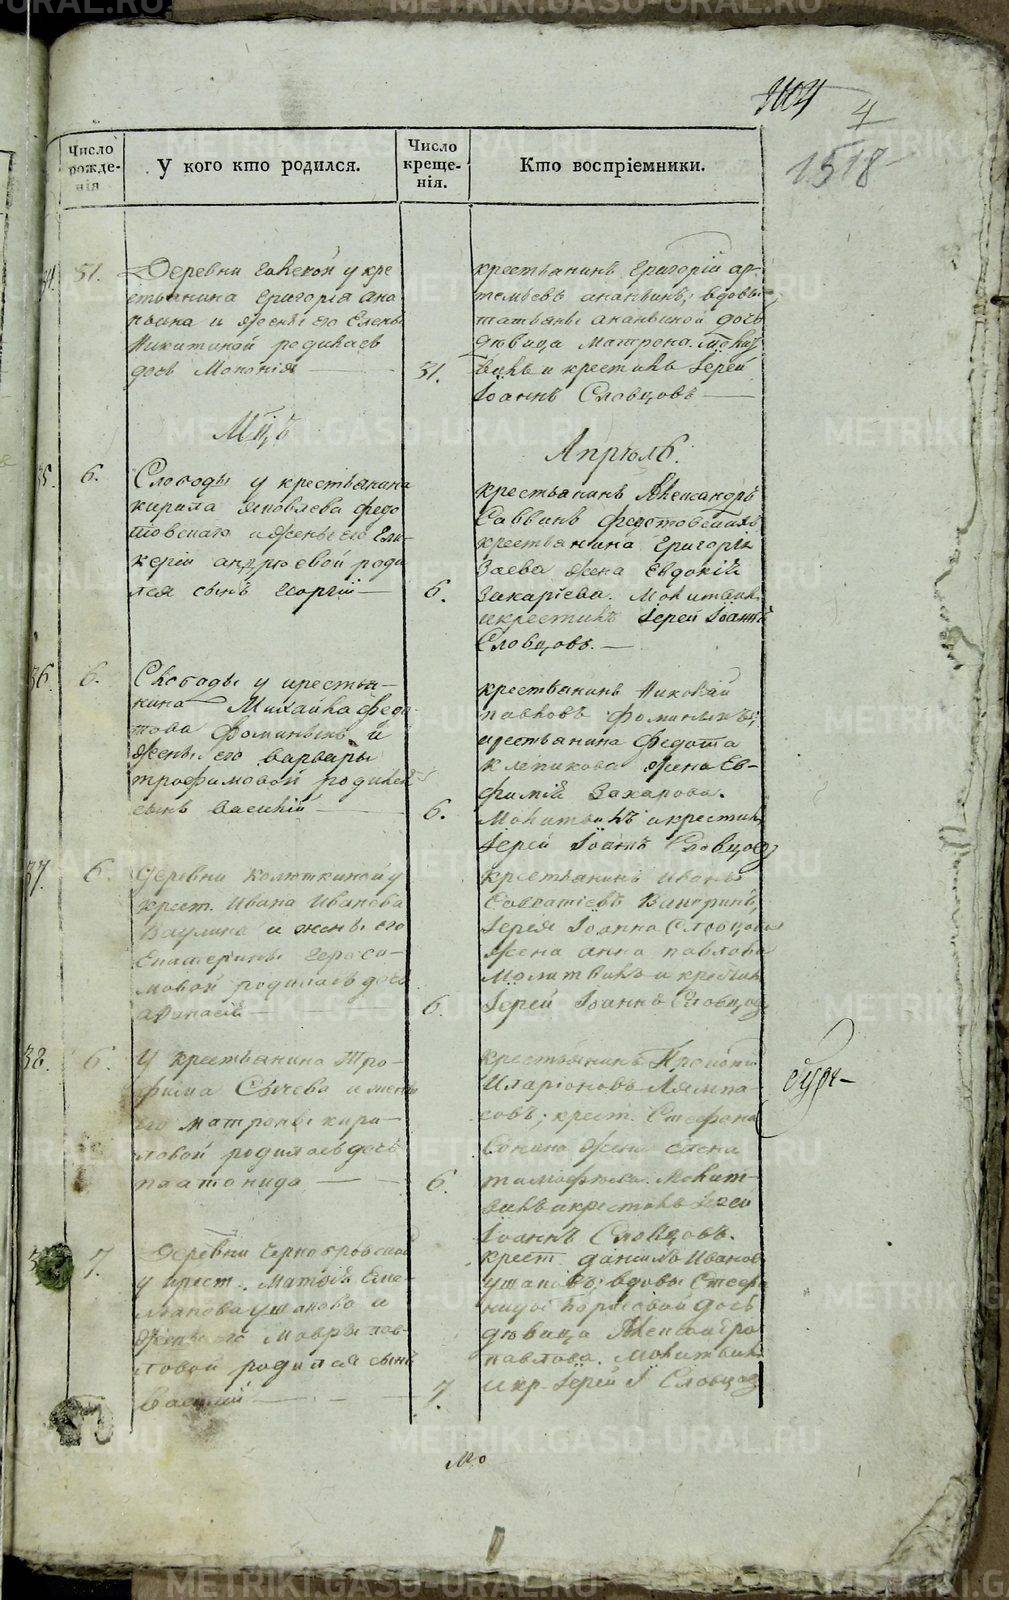 4
1518
Число рожде-нія
У кого кто родился.
Число креще-нія.
Кто воспріемники.
31.
Деревни у кре
стьянина Григорія Ана
ньина и жены его Елены
Никитиной родилась
дочь
31.
крестьянинъ Григорій ар-
темьевъ ананьинъ; вдовы
татьяны ананьиной дочь
девица матрона. Молит
вилъ и крестилъ Іерей
Іоаннъ Словцовъ
Мцъ
Апрель.
35.
6.
Слободы у крестьянина
кирила яковлева Федо
товскаго и жены его Гли-
керіи андреевой роди
лся сынъ Георгій
6.
крестьянинъ Александръ
Саввинъ
крестьянина Григорія
Заева жена Евдокія
Захаріева. Молитвилъ
и крестилъ Іерей Іоаннъ
Словцовъ.
36.
6.
Слободы у крестья-
нина Михайла Федо-
това Фоминыхъ и
жены его варвары
трофимовой родился
сынъ василій
6.
крестьянинъ Николай
павловъ Фоминыхъ;
крестьянина Федота
клепикова жена Ев-
фимія Захарова.
Молитвилъ и крестилъ
Іерей Іоаннъ Словцовъ
37.
6.
Деревни Колюткиной у
крест. Ивана Иванова
Ваулина и жены его
Екатерины Гераси-
мовой родилась дочь
афанасія
6.
крестьянинъ Иванъ
Савватіевъ
Іерея Іоанна Словцова
жена анна павлова
Молитвилъ и крестилъ
Іерей Іоаннъ Словцовъ
38.
6.
У крестьянина Тро-
фима Сычева и жены
его матроны кири-
ловой родилась дочь
платонида
6.
крестьянинъ
Иларіоновъ Лямпа-
совъ; крест. Стефана
Сонина жена
тимофеева. Молит-
вилъ и крестилъ Іерей
Іоаннъ Словцовъ.
7.
Деревни Чернобровской
у крест. Матвея Еме-
льянова ушакова и
жены его Мавры пав-
ловой родился сынъ
Василій
7.
крест данилъ Иванов
ушаковъ; вдовы Стефа
ниды Борисовой дочь
девица Александра
павлова. Молитвилъ
и кр. Іерей І Словцовъ
METRIKI.GASO-URAL.RU